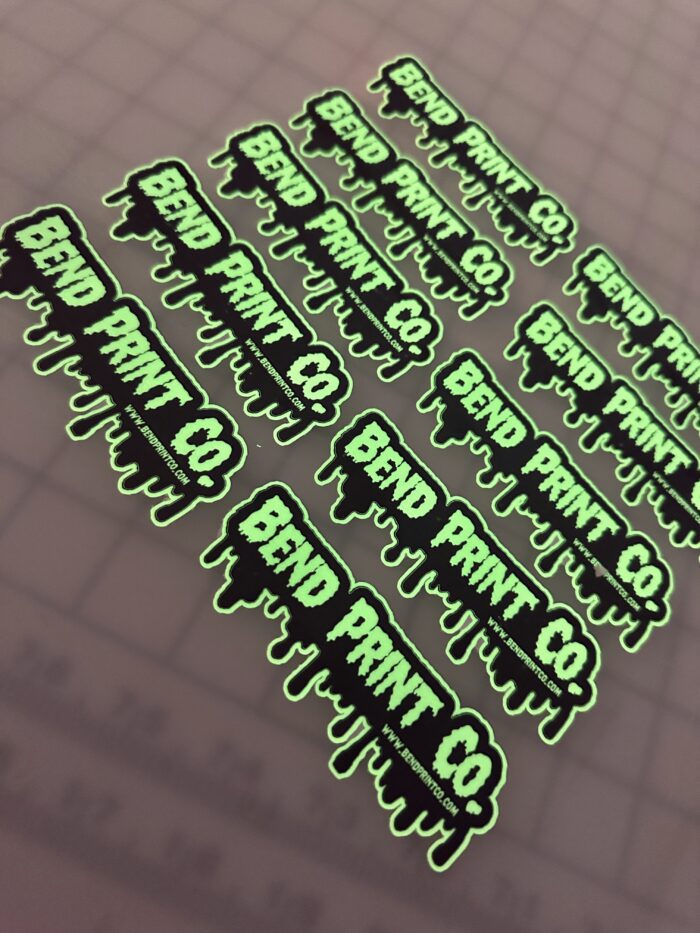 BEND PRINT CO.
BEND PRINT CO.
WWW.BENDPRINTCO.COM
BEND PRINT CO.
WWW.BENDPRINTCO.COM
BEND PRINT CO.
WWW.BENDPRINTCO.COM
BEND PRINT CO.
WWW.BENDPRINTCO.COM
BEND
BEND PRINT
BEND PRINT CO.
WWW.BENDPRINTCO.COM
BEND PRINT CO.
WWW.BENDPRINTCO.COM
BEND PRINT CO.
WWW.BENDPRINTCO.COM